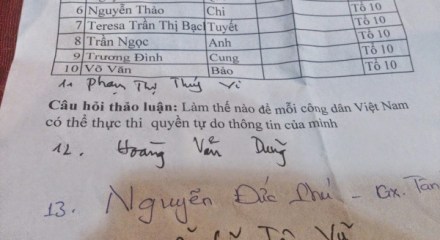 6 Nguyễn Thảo Chi Tổ 10
7 Teresa Trần Thị Bạch Tuyết Tổ 10
8 Trần Ngọc Anh Tổ 10
9 Trương Đình Cung Tổ 10
10 Võ Văn Bảo Tổ 10
11 Phạm Thị Thúy Vi
Câu hỏi thảo luận: Làm thế nào để mỗi công dân Việt Nam
có thể thực thi quyền tự do thông tin của mình
12. Hoàng Văn Dũng
13. Nguyễn Đức Phú - Gx. Tân